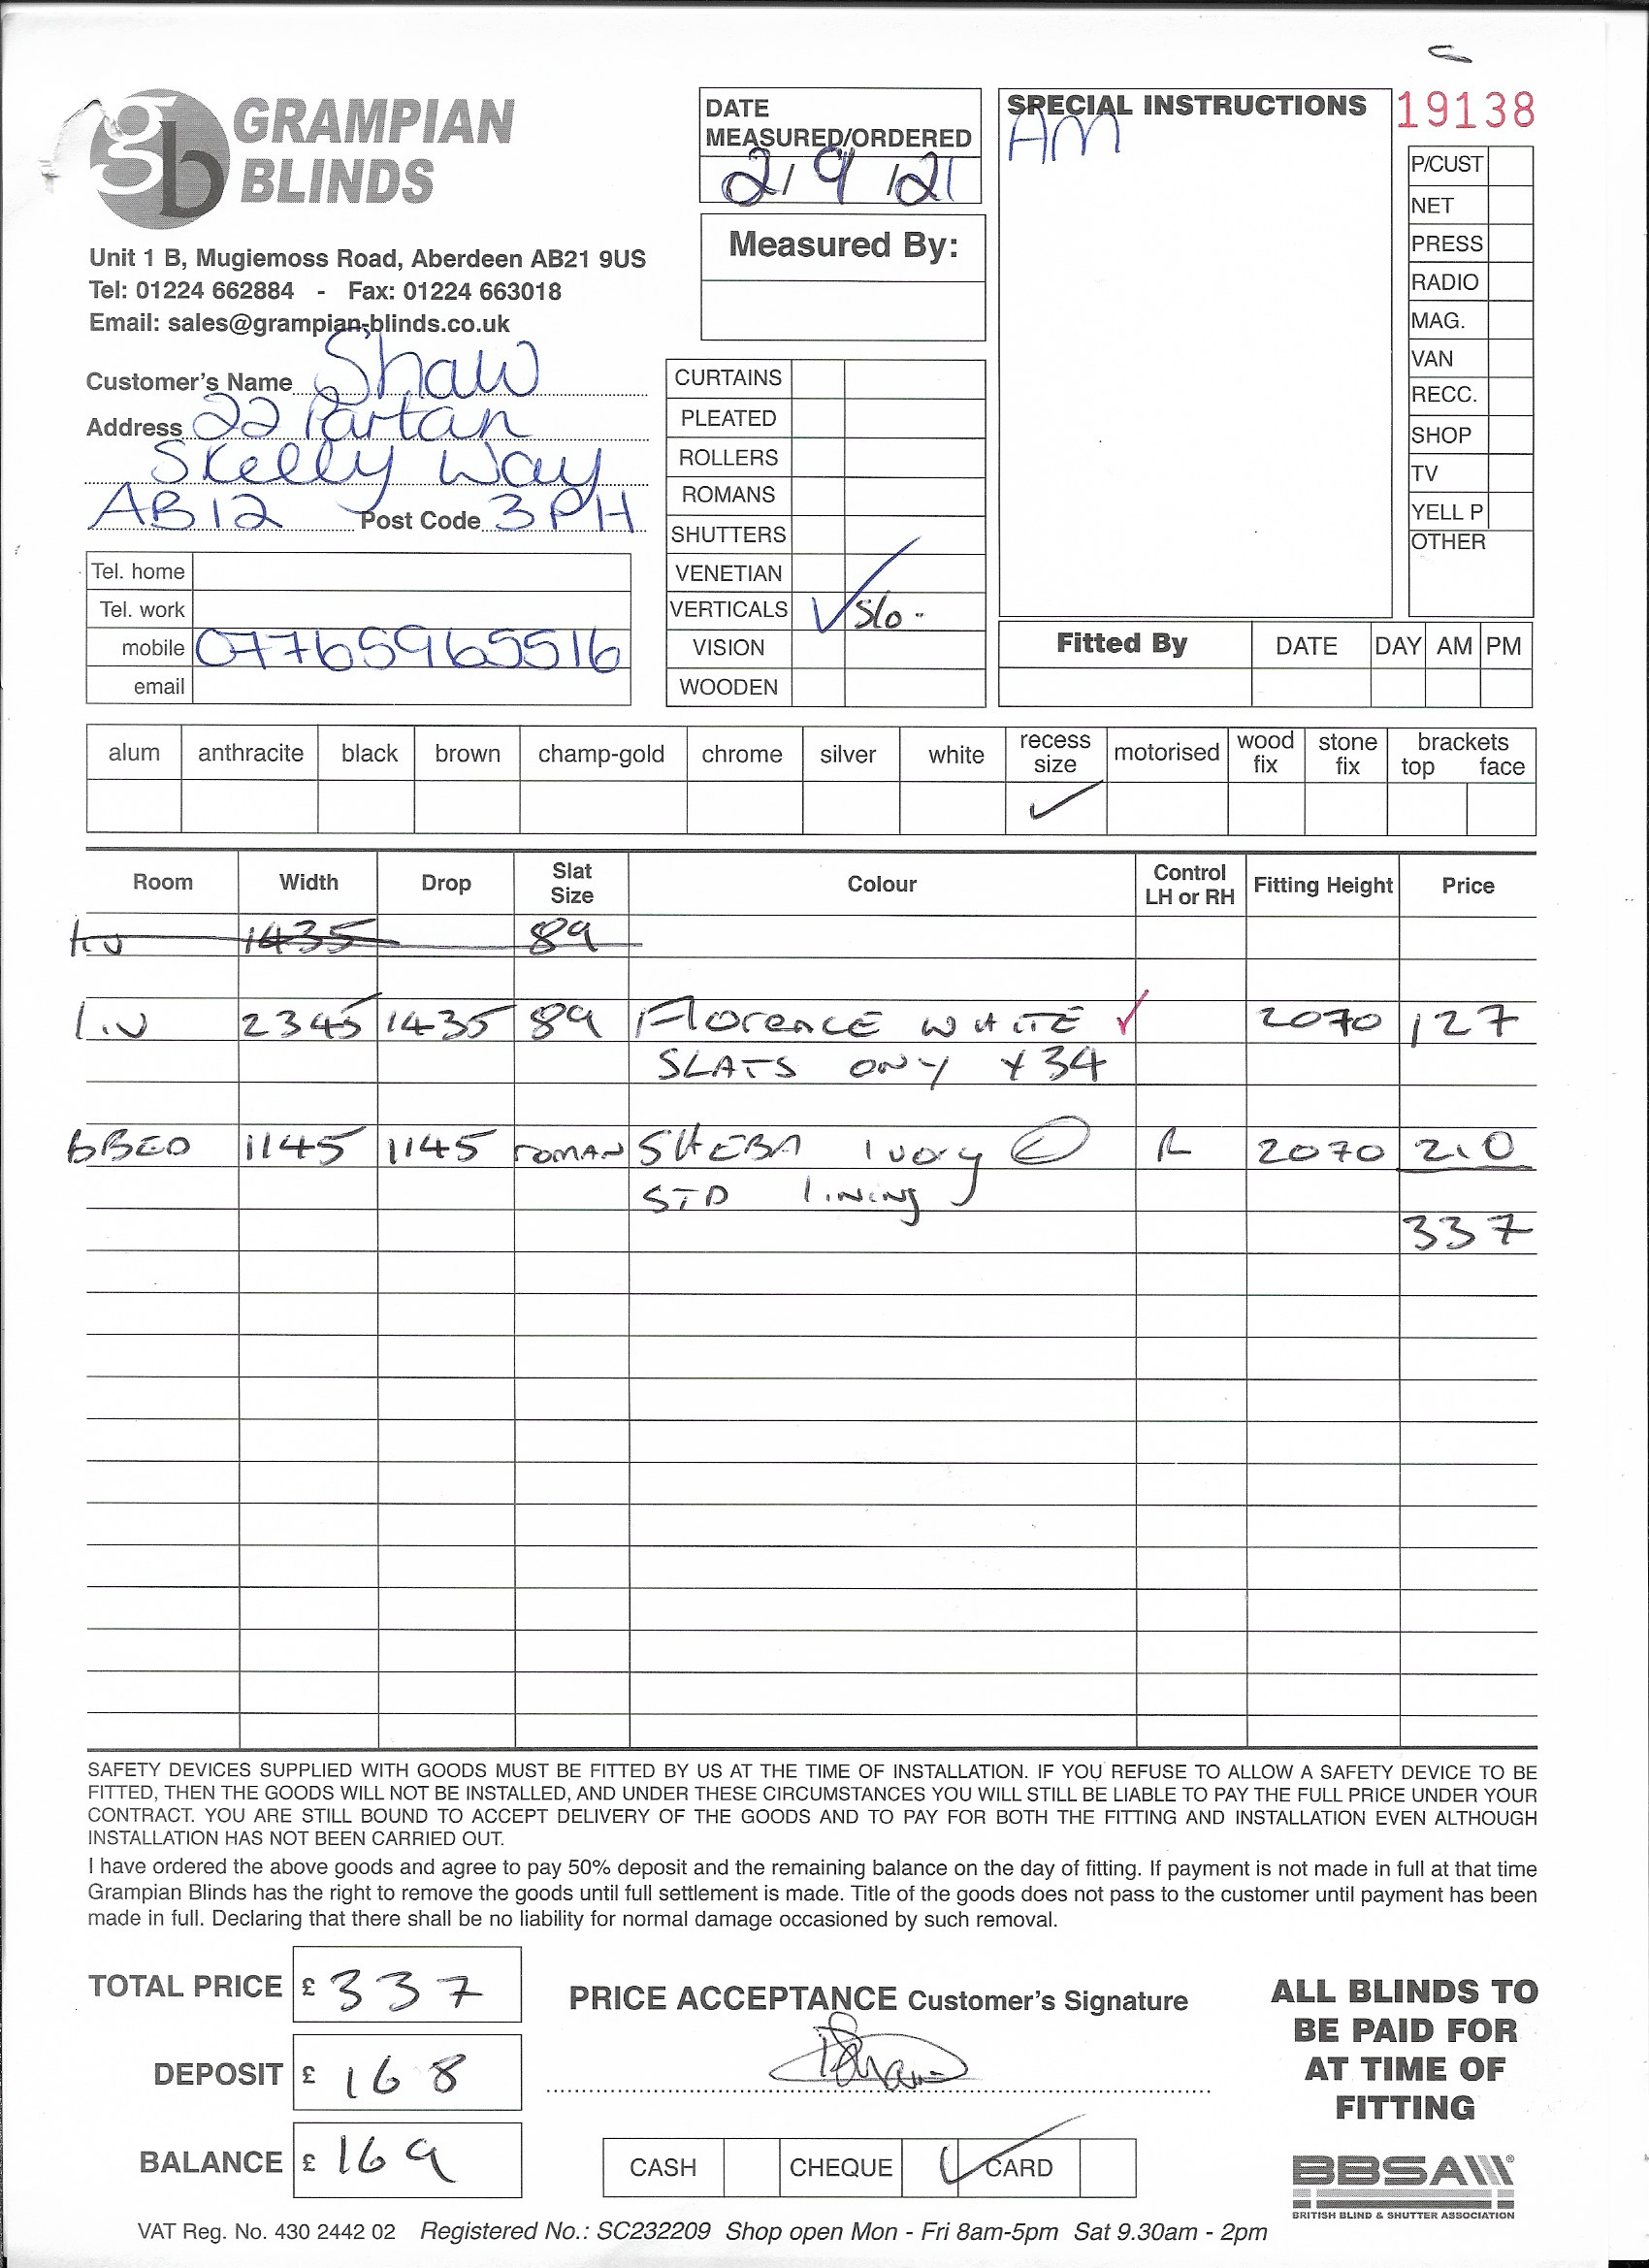 GRAMPIAN
BLINDS
Unit 1 B, Mugiemoss Road, Aberdeen AB21 9US
Tel: 01224 662884 - Fax: 01224 663018
Email: sales@grampian-blinds.co.uk
Customer's Name Shaw
Address 22 Partan
Skelly Way
AB12 Post Code 3PH
Tel. home
Tel. work
mobile 07765965516
email
DATE
MEASURED/ORDERED
2/9/21
Measured By:
CURTAINS
PLEATED
ROLLERS
ROMANS
SHUTTERS
VENETIAN
VERTICALS ✓ S/o -
VISION
WOODEN
SPECIAL INSTRUCTIONS
AM
19138
P/CUST
NET
PRESS
RADIO
MAG.
VAN
RECC.
SHOP
TV
YELL P
OTHER
Fitted By DATE DAY AM PM
alum anthracite black brown champ-gold chrome silver white recess size motorised wood fix stone fix brackets top face
✓
Room Width Drop Slat Size Colour Control LH or RH Fitting Height Price
Liv 1435 89
Liv 2345 1435 89 Florence WHITE ✓ 2070 127
SLATS ONLY x 34
bBED 1145 1145 ROMAN SHEBA Ivory R 2070 210
STD lining
337
SAFETY DEVICES SUPPLIED WITH GOODS MUST BE FITTED BY US AT THE TIME OF INSTALLATION. IF YOU REFUSE TO ALLOW A SAFETY DEVICE TO BE
FITTED, THEN THE GOODS WILL NOT BE INSTALLED, AND UNDER THESE CIRCUMSTANCES YOU WILL STILL BE LIABLE TO PAY THE FULL PRICE UNDER YOUR
CONTRACT. YOU ARE STILL BOUND TO ACCEPT DELIVERY OF THE GOODS AND TO PAY FOR BOTH THE FITTING AND INSTALLATION EVEN ALTHOUGH
INSTALLATION HAS NOT BEEN CARRIED OUT.
I have ordered the above goods and agree to pay 50% deposit and the remaining balance on the day of fitting. If payment is not made in full at that time
Grampian Blinds has the right to remove the goods until full settlement is made. Title of the goods does not pass to the customer until payment has been
made in full. Declaring that there shall be no liability for normal damage occasioned by such removal.
TOTAL PRICE £ 337
DEPOSIT £ 168
BALANCE £ 169
PRICE ACCEPTANCE Customer's Signature
CASH CHEQUE ✓ CARD
ALL BLINDS TO
BE PAID FOR
AT TIME OF
FITTING
BBSA
BRITISH BLIND & SHUTTER ASSOCIATION
VAT Reg. No. 430 2442 02 Registered No.: SC232209 Shop open Mon - Fri 8am-5pm Sat 9.30am - 2pm